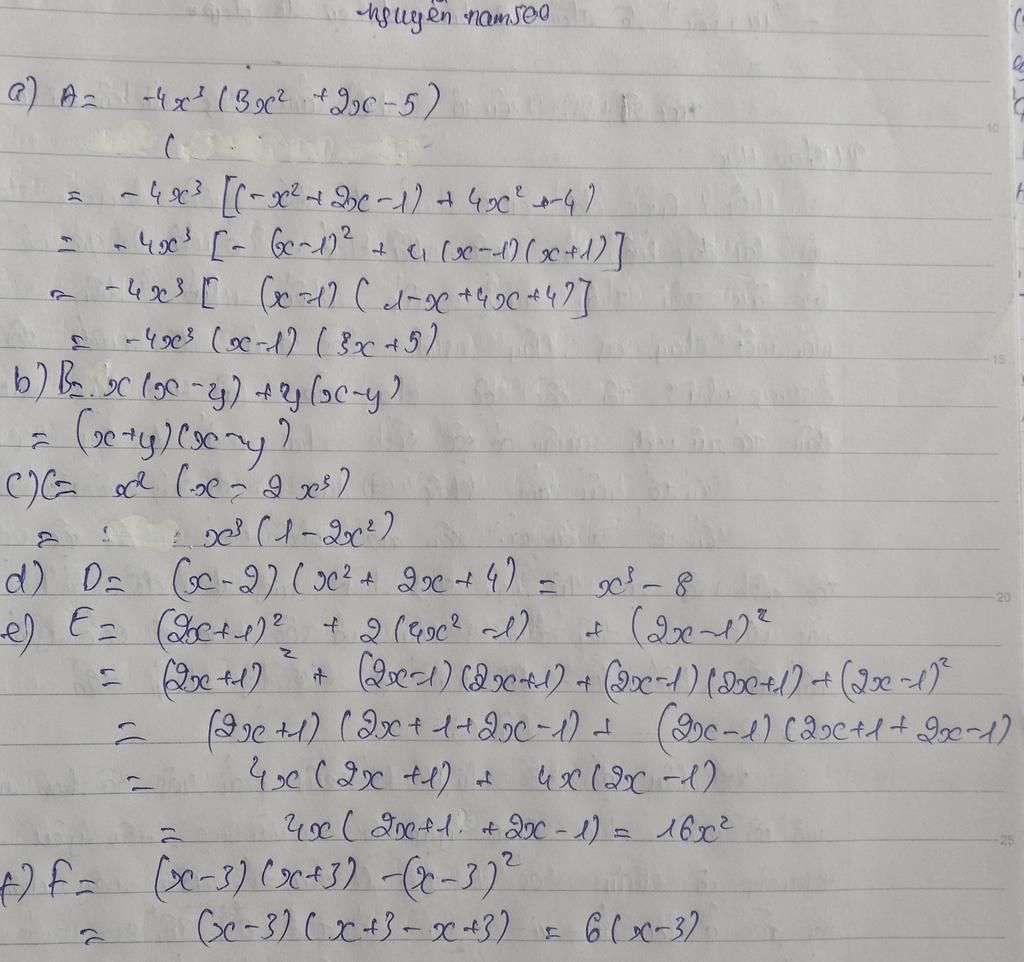 nguyễn nam500
a) A = -4x³ (3x² + 2x - 5)
(
= -4x³ [(-x² + 2x - 1) + 4x² + -4)
= -4x³ [- (x-1)² + 4 (x-1)(x+1)]
= -4x³ [ (x-1) ( 1-x+4x+4)]
= -4x³ (x-1) (3x+5)
b) B = x(x-y) + y(x-y)
= (x+y)(x-y)
c) C = x² (x - 2x³)
= x³ (1 - 2x²)
d) D = (x-2) (x² + 2x + 4) = x³ - 8
e) E = (2x+1)² + 2(4x² - 1) + (2x-1)²
= (2x+1)² + (2x-1)(2x+1) + (2x-1)(2x+1) + (2x-1)²
= (2x+1) (2x+1+2x-1) + (2x-1)(2x+1+2x-1)
= 4x(2x+1) + 4x(2x-1)
= 4x(2x+1 + 2x-1) = 16x²
f) F = (x-3)(x+3) - (x-3)²
= (x-3)(x+3-x+3) = 6(x-3)
10
15
20
25